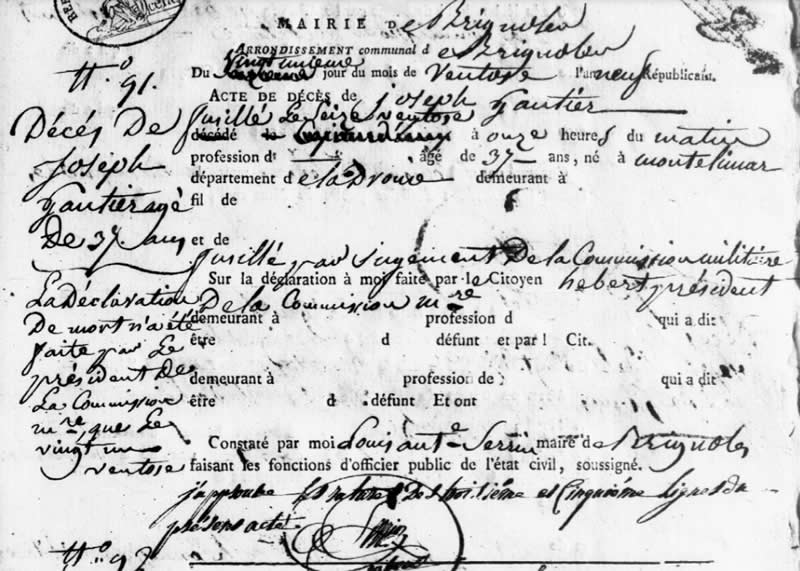 MAIRIE De Brignoles
ARRONDISSEMENT communal d e Brignoles
Du vingtunieme jour du mois de Ventose l'an neuf Républicain.
ACTE DE DÉCÈS de joseph gautier
fusillé Le Seize ventose
décédé le à onze heures du matin
profession d âgé de 37 ans, né à montelimar
département d e la Drome demeurant à
fil de
et de
fusillé par jugement De la Commission militaire
Sur la déclaration à moi faite par le Citoyen hebert président
De la Commission mre
demeurant à profession d qui a dit
être d défunt et par l Cit.
demeurant à profession de qui a dit
être d défunt Et ont
Constaté par moi Louis ante Serrin maire de Brignoles
faisant les fonctions d'officier public de l'état civil, soussigné.
j'approuve Les ratures Des troisième et Cinquième lignes du
présent acte.
No 91.
Décés De
joseph
gautier agé
De 37 ans
La Déclaration
De mort n'a été
faite par Le
président De
La Commission
mre que Le
vingt un
ventose
No 92